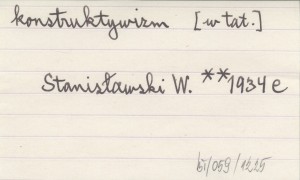 konstruktywizm [w tat.]
Stanisławski W. **1934 e
bi/059/1225